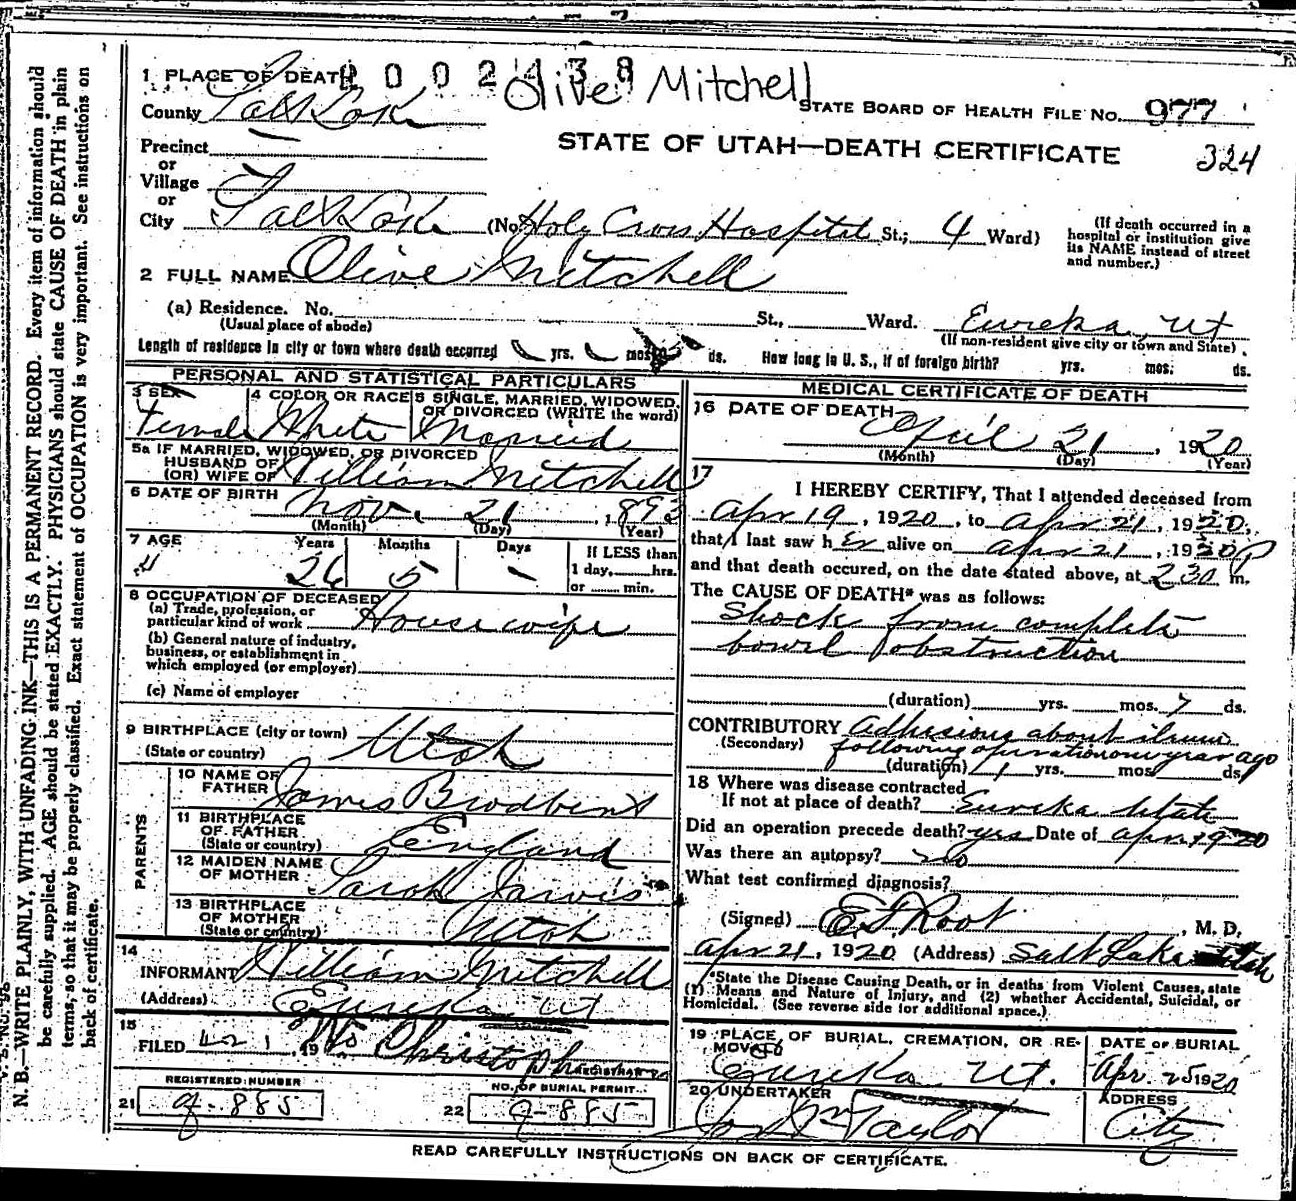 N. B.—WRITE PLAINLY, WITH UNFADING INK—THIS IS A PERMANENT RECORD. Every item of information should
be carefully supplied. AGE should be stated EXACTLY. PHYSICIANS should state CAUSE OF DEATH in plain
terms, so that it may be properly classified. Exact statement of OCCUPATION is very important. See instructions on
back of certificate.
Olive Mitchell
1 PLACE OF DEATH
County Salt Lake
STATE BOARD OF HEALTH FILE NO. 977
STATE OF UTAH—DEATH CERTIFICATE 324
Precinct —
or
Village —
or
City Salt Lake (No. Holy Cross Hospital St.; 4 Ward)
(If death occurred in a
hospital or institution give
its NAME instead of street
and number.)
2 FULL NAME Olive Mitchell
(a) Residence. No. St., Ward. Eureka, Ut
(Usual place of abode) (If non-resident give city or town and State)
Length of residence in city or town where death occurred yrs. mos. ds. How long in U. S., if of foreign birth? yrs. mos. ds.
PERSONAL AND STATISTICAL PARTICULARS
3 SEX Female
4 COLOR OR RACE White
5 SINGLE, MARRIED, WIDOWED, OR DIVORCED (WRITE the word) Married
5a IF MARRIED, WIDOWED, OR DIVORCED
HUSBAND OF
(OR) WIFE OF William Mitchell
6 DATE OF BIRTH Nov. 21, 1893
(Month) (Day) (Year)
7 AGE Years Months Days If LESS than
26 5 — 1 day, hrs.
or min.
8 OCCUPATION OF DECEASED
(a) Trade, profession, or
particular kind of work Housewife
(b) General nature of industry,
business, or establishment in
which employed (or employer)
(c) Name of employer
9 BIRTHPLACE (city or town)
(State or country) Utah
PARENTS
10 NAME OF
FATHER James Brodbent
11 BIRTHPLACE
OF FATHER
(State or country) England
12 MAIDEN NAME
OF MOTHER Sarah Jarvis
13 BIRTHPLACE
OF MOTHER
(State or country) Utah
14
INFORMANT William Mitchell
(Address) Eureka Ut
15
FILED 4-21, 19 Christoph
REGISTRAR
REGISTERED NUMBER
21
NO. OF BURIAL PERMIT
22
MEDICAL CERTIFICATE OF DEATH
16 DATE OF DEATH April 21, 1920
(Month) (Day) (Year)
17
I HEREBY CERTIFY, That I attended deceased from
Apr 19, 1920, to Apr 21, 1920.
that I last saw her alive on Apr 21, 1920
and that death occured, on the date stated above, at 2 30 P m.
The CAUSE OF DEATH* was as follows:
Shock from complete
bowel obstruction
(duration) yrs. mos. 7 ds.
CONTRIBUTORY Adhesions about ileum
(Secondary) following operation one year ago
(duration) 1 yrs. mos. ds.
18 Where was disease contracted
If not at place of death? Eureka Utah
Did an operation precede death? yes Date of Apr 19-20
Was there an autopsy? no
What test confirmed diagnosis?
(Signed) Root, M. D.
Apr 21, 1920 (Address) Salt Lake Utah
*State the Disease Causing Death, or in deaths from Violent Causes, state
(1) Means and Nature of Injury, and (2) whether Accidental, Suicidal, or
Homicidal. (See reverse side for additional space.)
19 PLACE OF BURIAL, CREMATION, OR RE-
MOVAL DATE OF BURIAL
Eureka Ut. Apr. 25 1920
20 UNDERTAKER ADDRESS
Jos Wm Taylor City
READ CAREFULLY INSTRUCTIONS ON BACK OF CERTIFICATE.